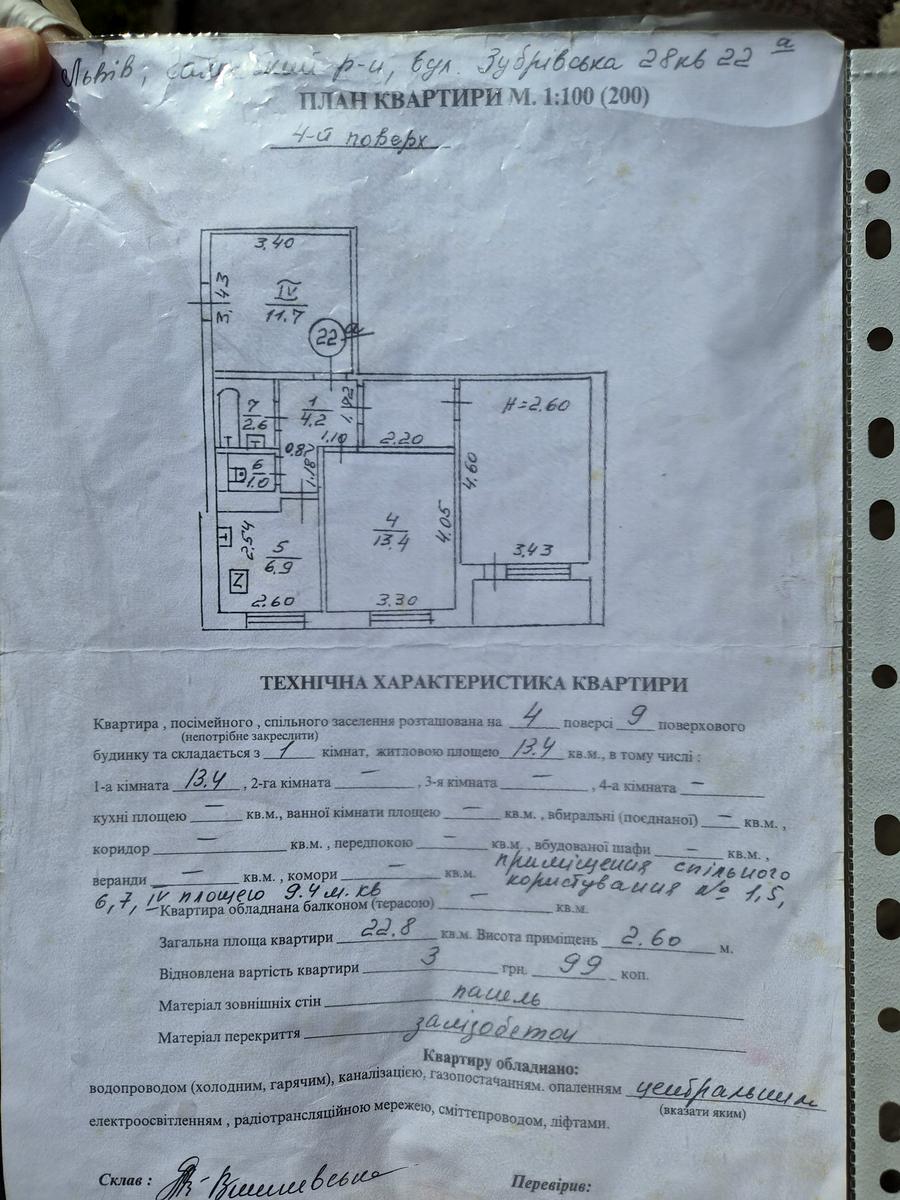 Львів, р-н, вул. Зубрівська 28 кв 22 а
ПЛАН КВАРТИРИ М. 1:100 (200)
4-й поверх
3.40
3.43
IV
11.7
22 а
7
2.6
1
4.2
1.42
1.10
2.20
H=2.60
0.87
1.18
6
1.0
4.60
4.05
2.54
5
6.9
4
13.4
3.43
2.60
3.30
ТЕХНІЧНА ХАРАКТЕРИСТИКА КВАРТИРИ
Квартира , посімейного , спільного заселення розташована на 4 поверсі 9 поверхового
(непотрібне закреслити)
будинку та складається з 1 кімнат, житловою площею 13.4 кв.м., в тому числі :
1-а кімната 13.4 , 2-га кімната — , 3-я кімната — , 4-а кімната —
кухні площею — кв.м., ванної кімнати площею — кв.м. , вбиральні (поєднаної) — кв.м. ,
коридор — кв.м. , передпокою — кв.м. , вбудованої шафи — кв.м. ,
веранди — кв.м. , комори — кв.м. приміщення спільного
користування № 1,5,
6, 7, IV площею 9.4 м. кв
Квартира обладнана балконом (терасою) — кв.м.
Загальна площа квартири 22.8 кв.м. Висота приміщень 2.60 м.
Відновлена вартість квартири 3 грн. 99 коп.
Матеріал зовнішніх стін панель
Матеріал перекриття залізобетон
Квартиру обладнано:
водопроводом (холодним, гарячим), каналізацією, газопостачанням. опаленням центральним
(вказати яким)
електроосвітленням , радіотрансляційною мережею, сміттєпроводом, ліфтами.
Склав :
Перевірив: